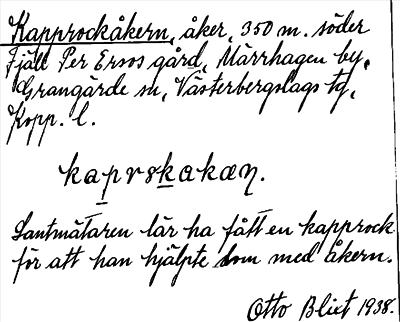 Kapprockåkern, åker, 350 m. söder
Fjäll Per Ersos gård, Märrhagen by,
Grangärde sn, Västerbergslags tg,
Kopp. l.
kaprskakæn.
Lantmätaren lär ha fått en kapprock
för att han hjälpte dom med åkern.
Otto Blixt 1938.